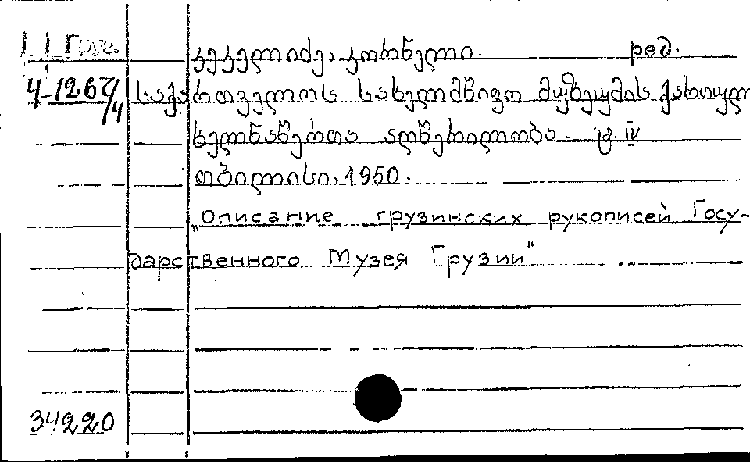 კეკელიძე, კორნელი. ред.
4-1267/4 საქართველოს სახელმწიფო მუზეუმის ქართულ
ხელნაწერთა აღწერილობა. ტ IV
თბილისი, 1950.
„Описание грузинских рукописей Госу-
дарственного Музея Грузии"
34220